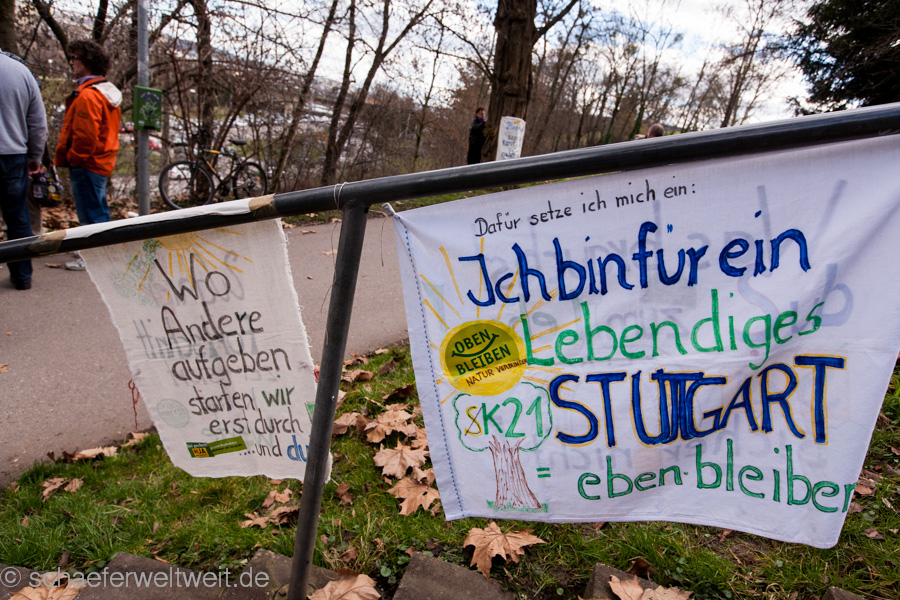 Wo
Andere
aufgeben
starten wir
erst durch
...und du
Dafür setze ich mich ein:
Ich bin für ein
Lebendiges
STUTTGART
= eben-bleiben
OBEN
BLEIBEN
NATUR
K21
© schaeferweltweit.de